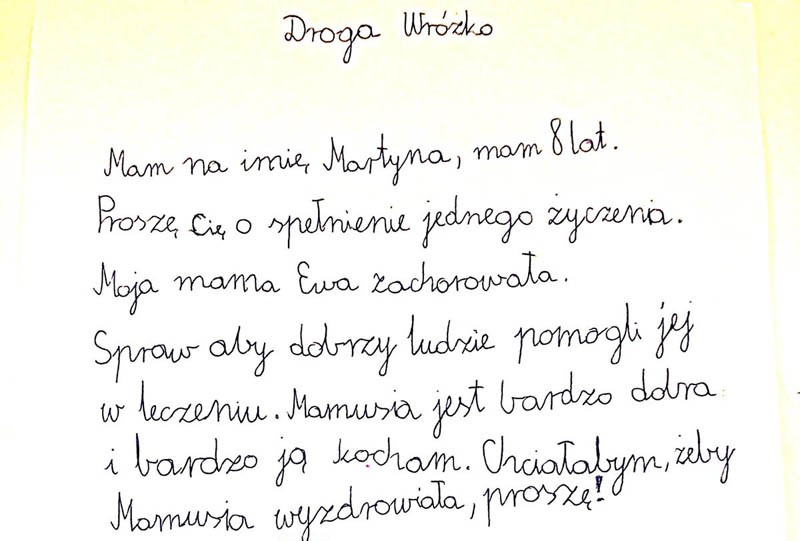 Droga Wróżko
Mam na imię Martyna, mam 8 lat.
Proszę Cię o spełnienie jednego życzenia.
Moja mama Ewa zachorowała.
Spraw aby dobrzy ludzie pomogli jej
w leczeniu. Mamusia jest bardzo dobra
i bardzo ją kocham. Chciałabym, żeby
Mamusia wyzdrowiała, proszę!